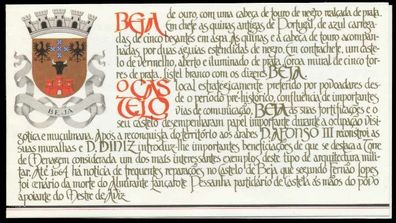 BEJA de ouro, com uma cabeça de touro de negro realçada de prata.
Em chefe as quinas antigas de Portugal, de azul carrega-
das de cinco besantes em aspa. As quinas e a cabeça de touro acompan-
hadas, por duas águias estendidas de negro. Em contrachefe, um caste-
lo de vermelho aberto e iluminado de prata. Coroa mural de cinco tor-
res de prata. Listel branco com os dizeres BEJA.
O CAS
TELO
Local estrategicamente preferido por povoadores des-
de o período pré-histórico, confluência de importantes
vias de comunicação, BEJA as suas fortificações e o
seu castelo desempenharam papel importante durante a ocupação visi-
gótica e muçulmana. Após a reconquista do território aos árabes D. AFONSO III reconstrói as
suas muralhas e D. DINIZ introduz-lhe importantes beneficiações de que se destaca a Torre
de Menagem considerada um dos mais interessantes exemplos deste tipo de arquitectura mili-
tar. Até 1664 há notícia de frequentes reparações no castelo de Beja que segundo Fernão Lopes
foi cenário da morte do Almirante Lançarote Pessanha partidário de Castela às mãos do povo
apoiante do Mestre de Aviz.
BEJA